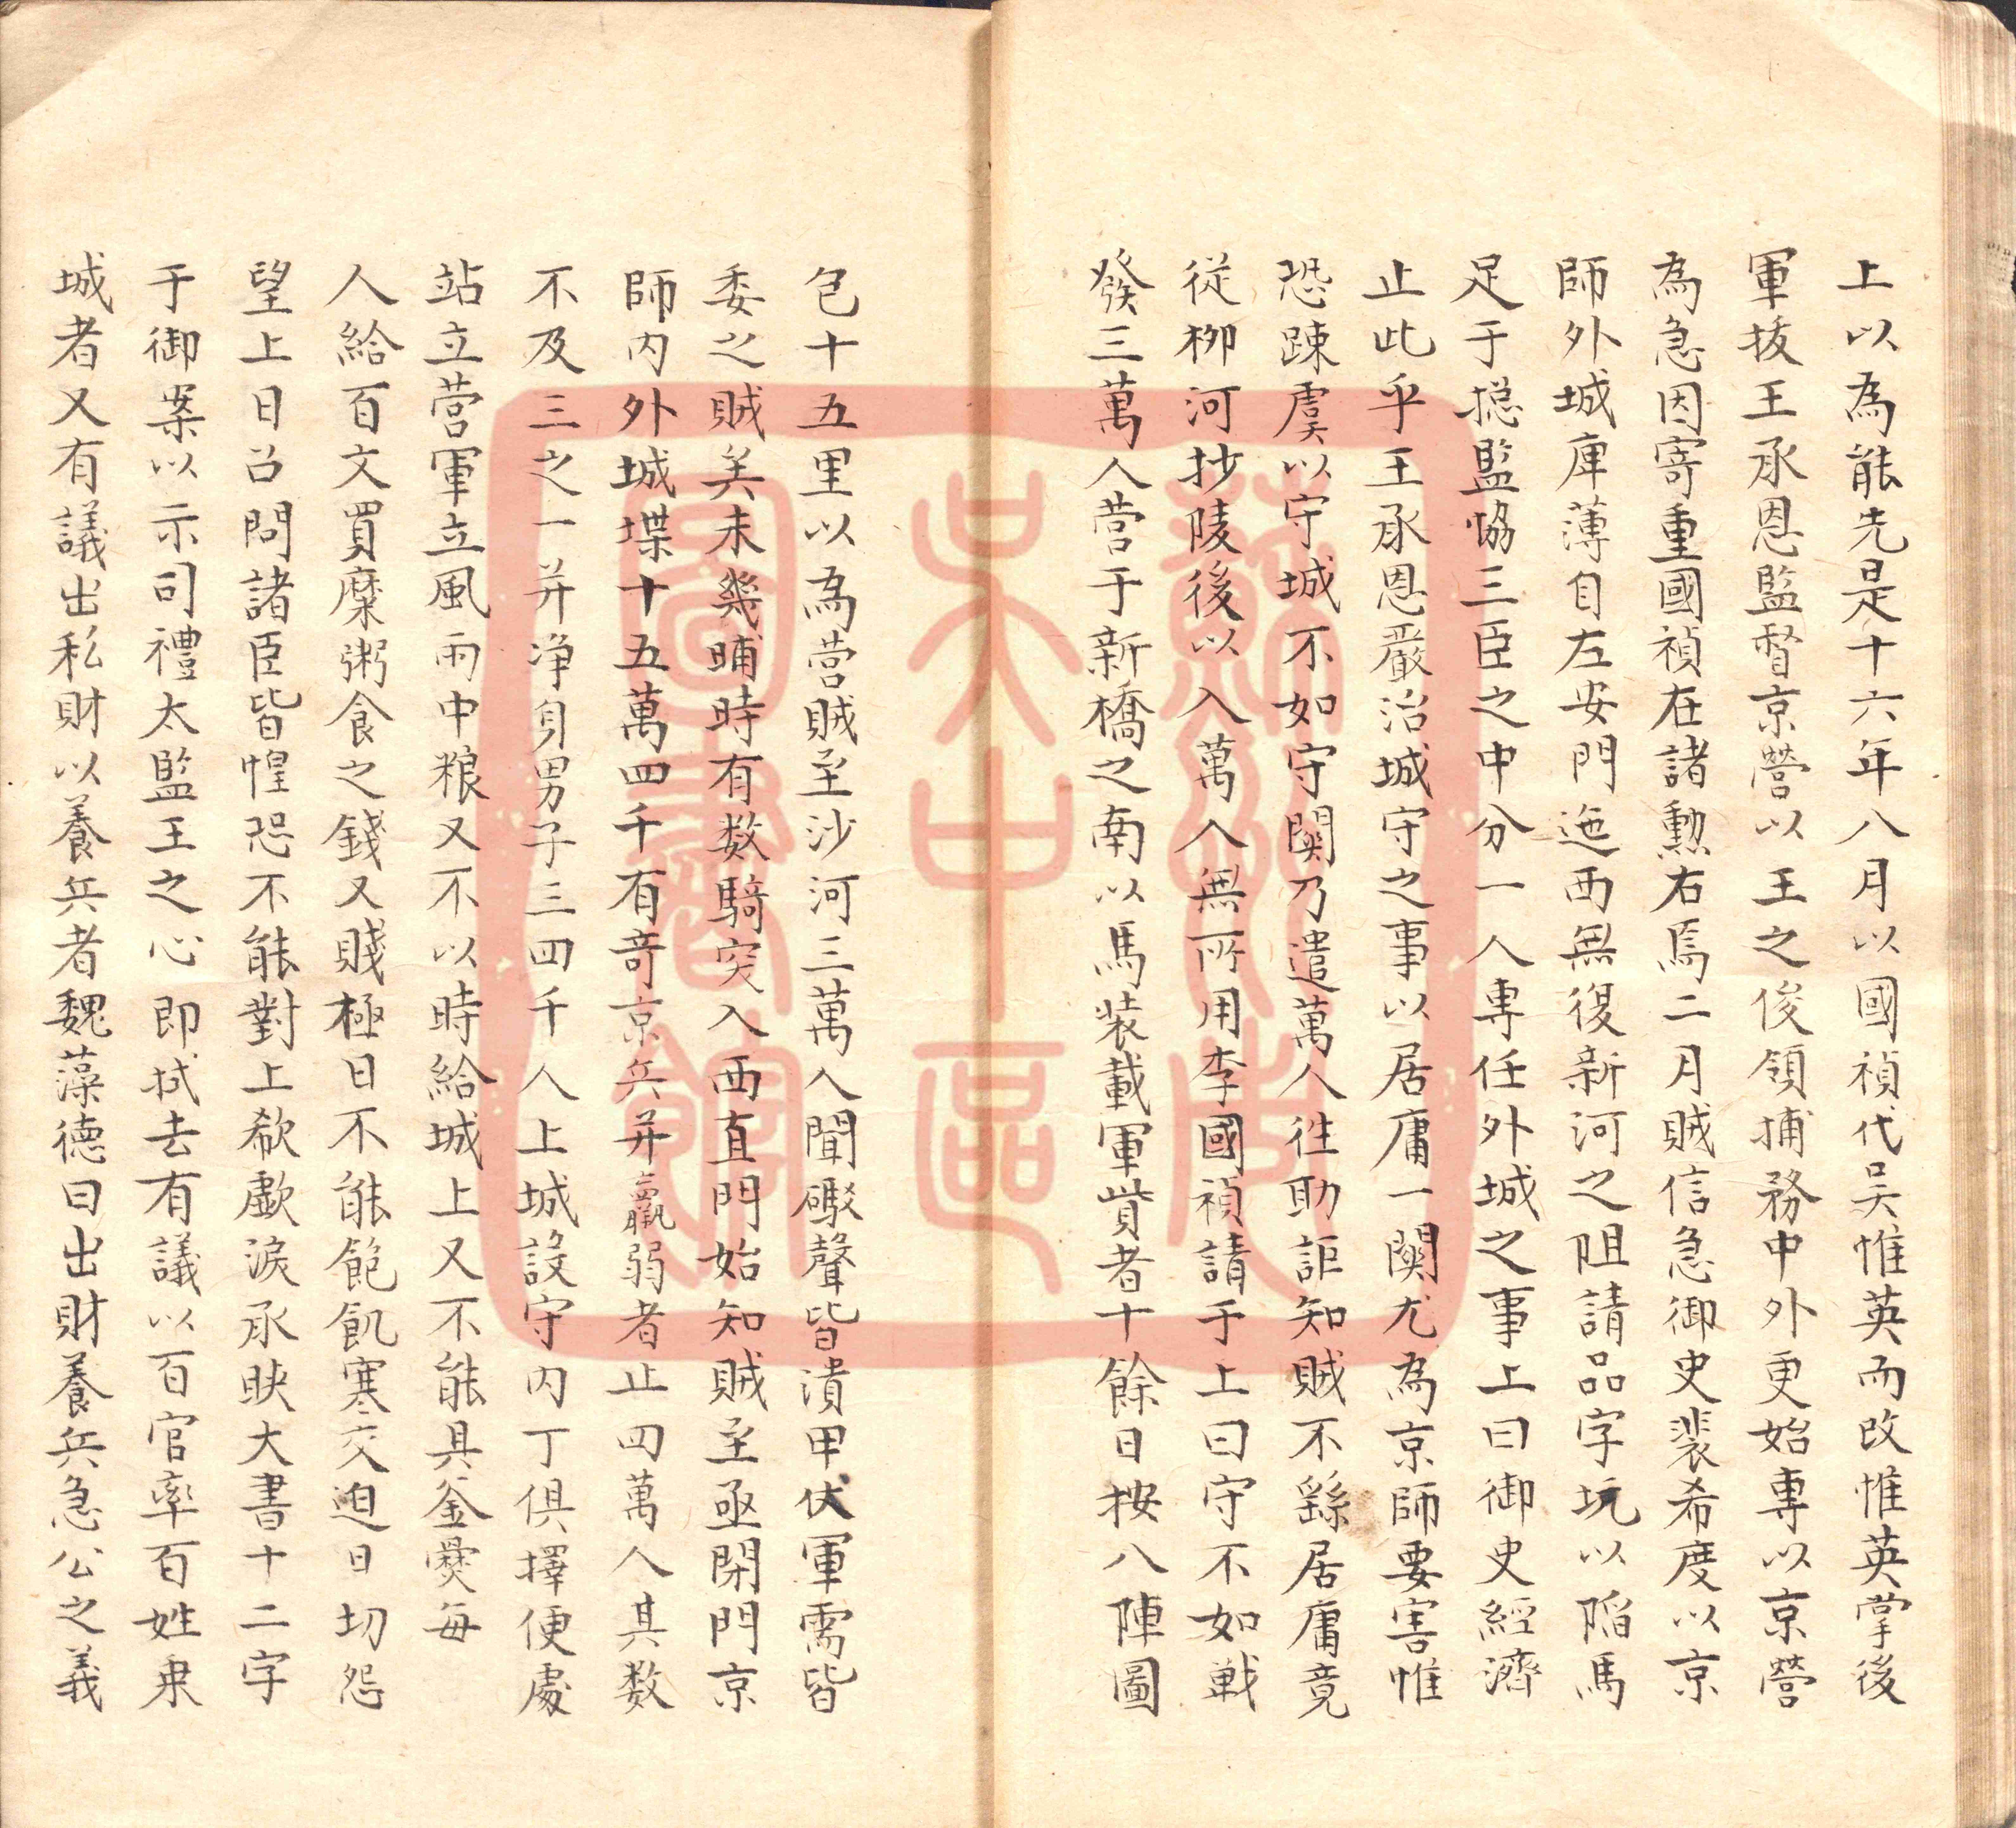 上以為能先是十六年八月以國禎代吴惟英而改惟英掌後
軍抜王承恩監督京營以王之俊領捕務中外更始專以京營
為急因寄重國禎在諸勲右焉二月賊信急御史裴希度以京
師外城庳薄自左安門迤西無復新河之阻請品字坑以陷馬
足于摠監恊三臣之中分一人専任外城之事上曰御史經濟
止此乎王承恩嚴治城守之事以居庸一関尤為京師要害惟
恐踈虞以守城不如守関乃遣萬人徃助詎知賊不繇居庸竟
從柳河抄陵後以入萬人無所用李國禎請于上曰守不如戦
發三萬人营于新橋之南以馬装載軍貲者十餘日按八陣圖
包十五里以為营賊至沙河三萬人聞礟聲皆潰甲伏軍需皆
委之賊矣未幾晡時有数騎突入西直門始知賊至亟閉門京
師内外城堞十五萬四千有竒京兵并羸弱者止四萬人其数
不及三之一并净身男子三四千人上城設守内丁俱擇便處
站立营軍立風雨中粮又不以時給城上又不能具釜爨每
人給百文買糜粥食之錢又賤極日不能飽飢寒交迫日切怨
望上日召問諸臣皆惶恐不能對上欷歔淚承睫大書十二字
于御案以示司禮太監王之心即拭去有議以百官率百姓乗
城者又有議出私財以養兵者魏藻德曰出財養兵急公之義
蘇州市
吴中區
圖書館